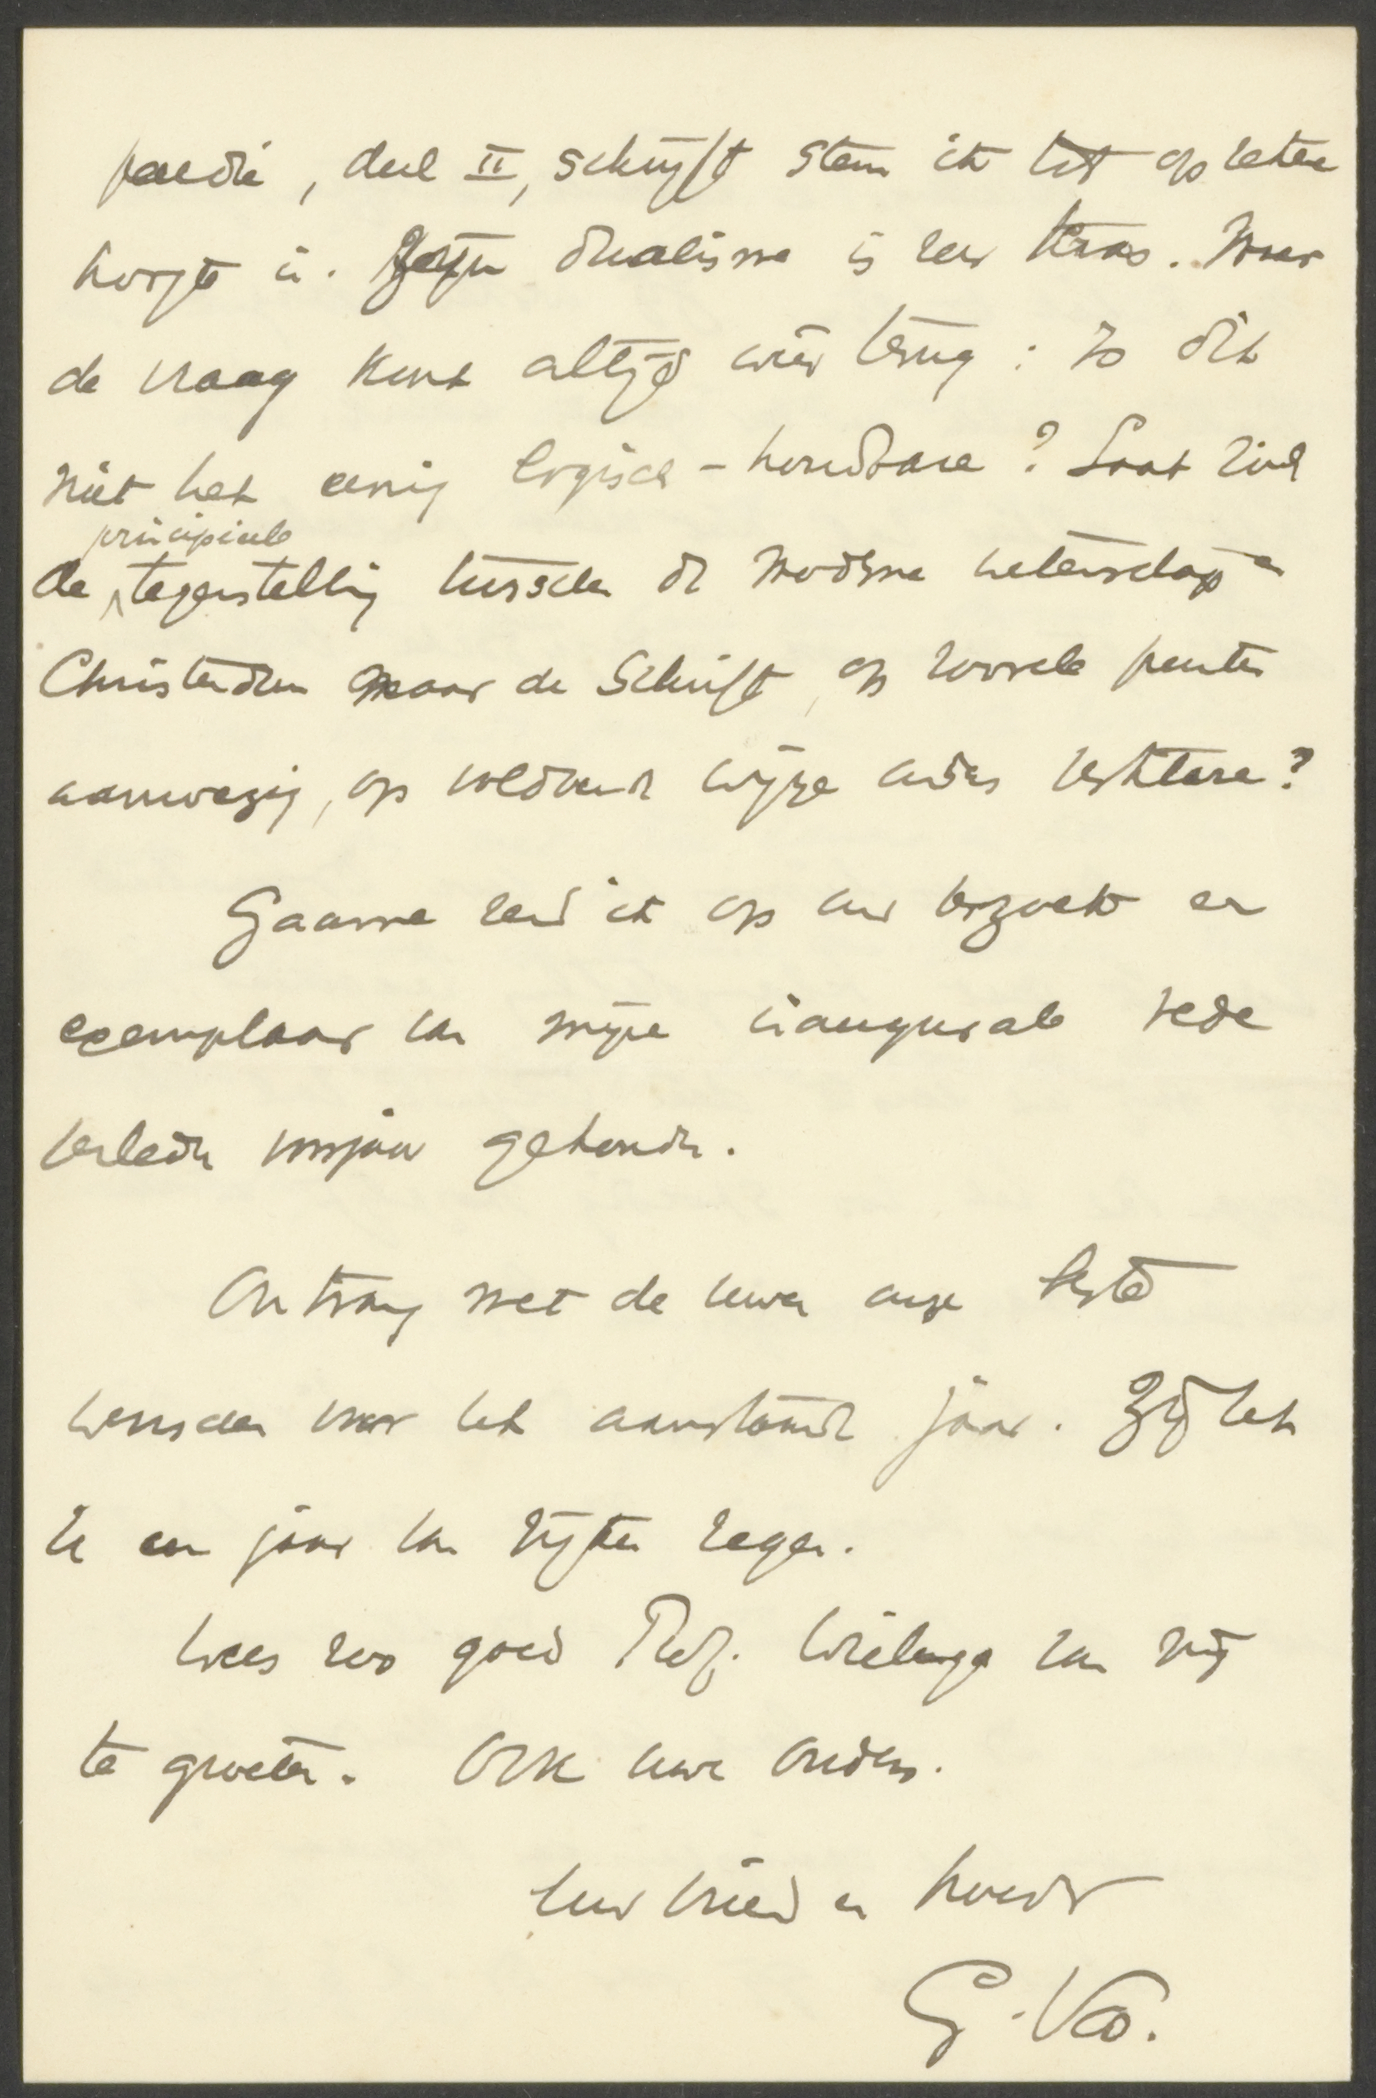 paedie, deel II, schrijft stem ik tot op zekere
hoogte in. Zijn dualisme is zeer kras. Maar
de vraag komt altijd weer terug: Is dit
niet het eenig logisch-houdbare? Laat zich
de principieele tegenstelling tusschen de moderne wetenschap en
Christendom naar de Schrift, op zoovele punten
aanwezig, op voldoende wijze anders verklaren?
Gaarne zend ik op uw verzoek een
exemplaar van mijne inaugurale rede
verleden voorjaar gehouden.
Ontvang met de uwen onze beste
wenschen voor het aanstaande jaar. Zij het
U een jaar van rijken zegen.
Wees zoo goed Prof. Wielenga van mij
te groeten. Ook uwe ouders.
Uw vriend en broeder
G. Vos.